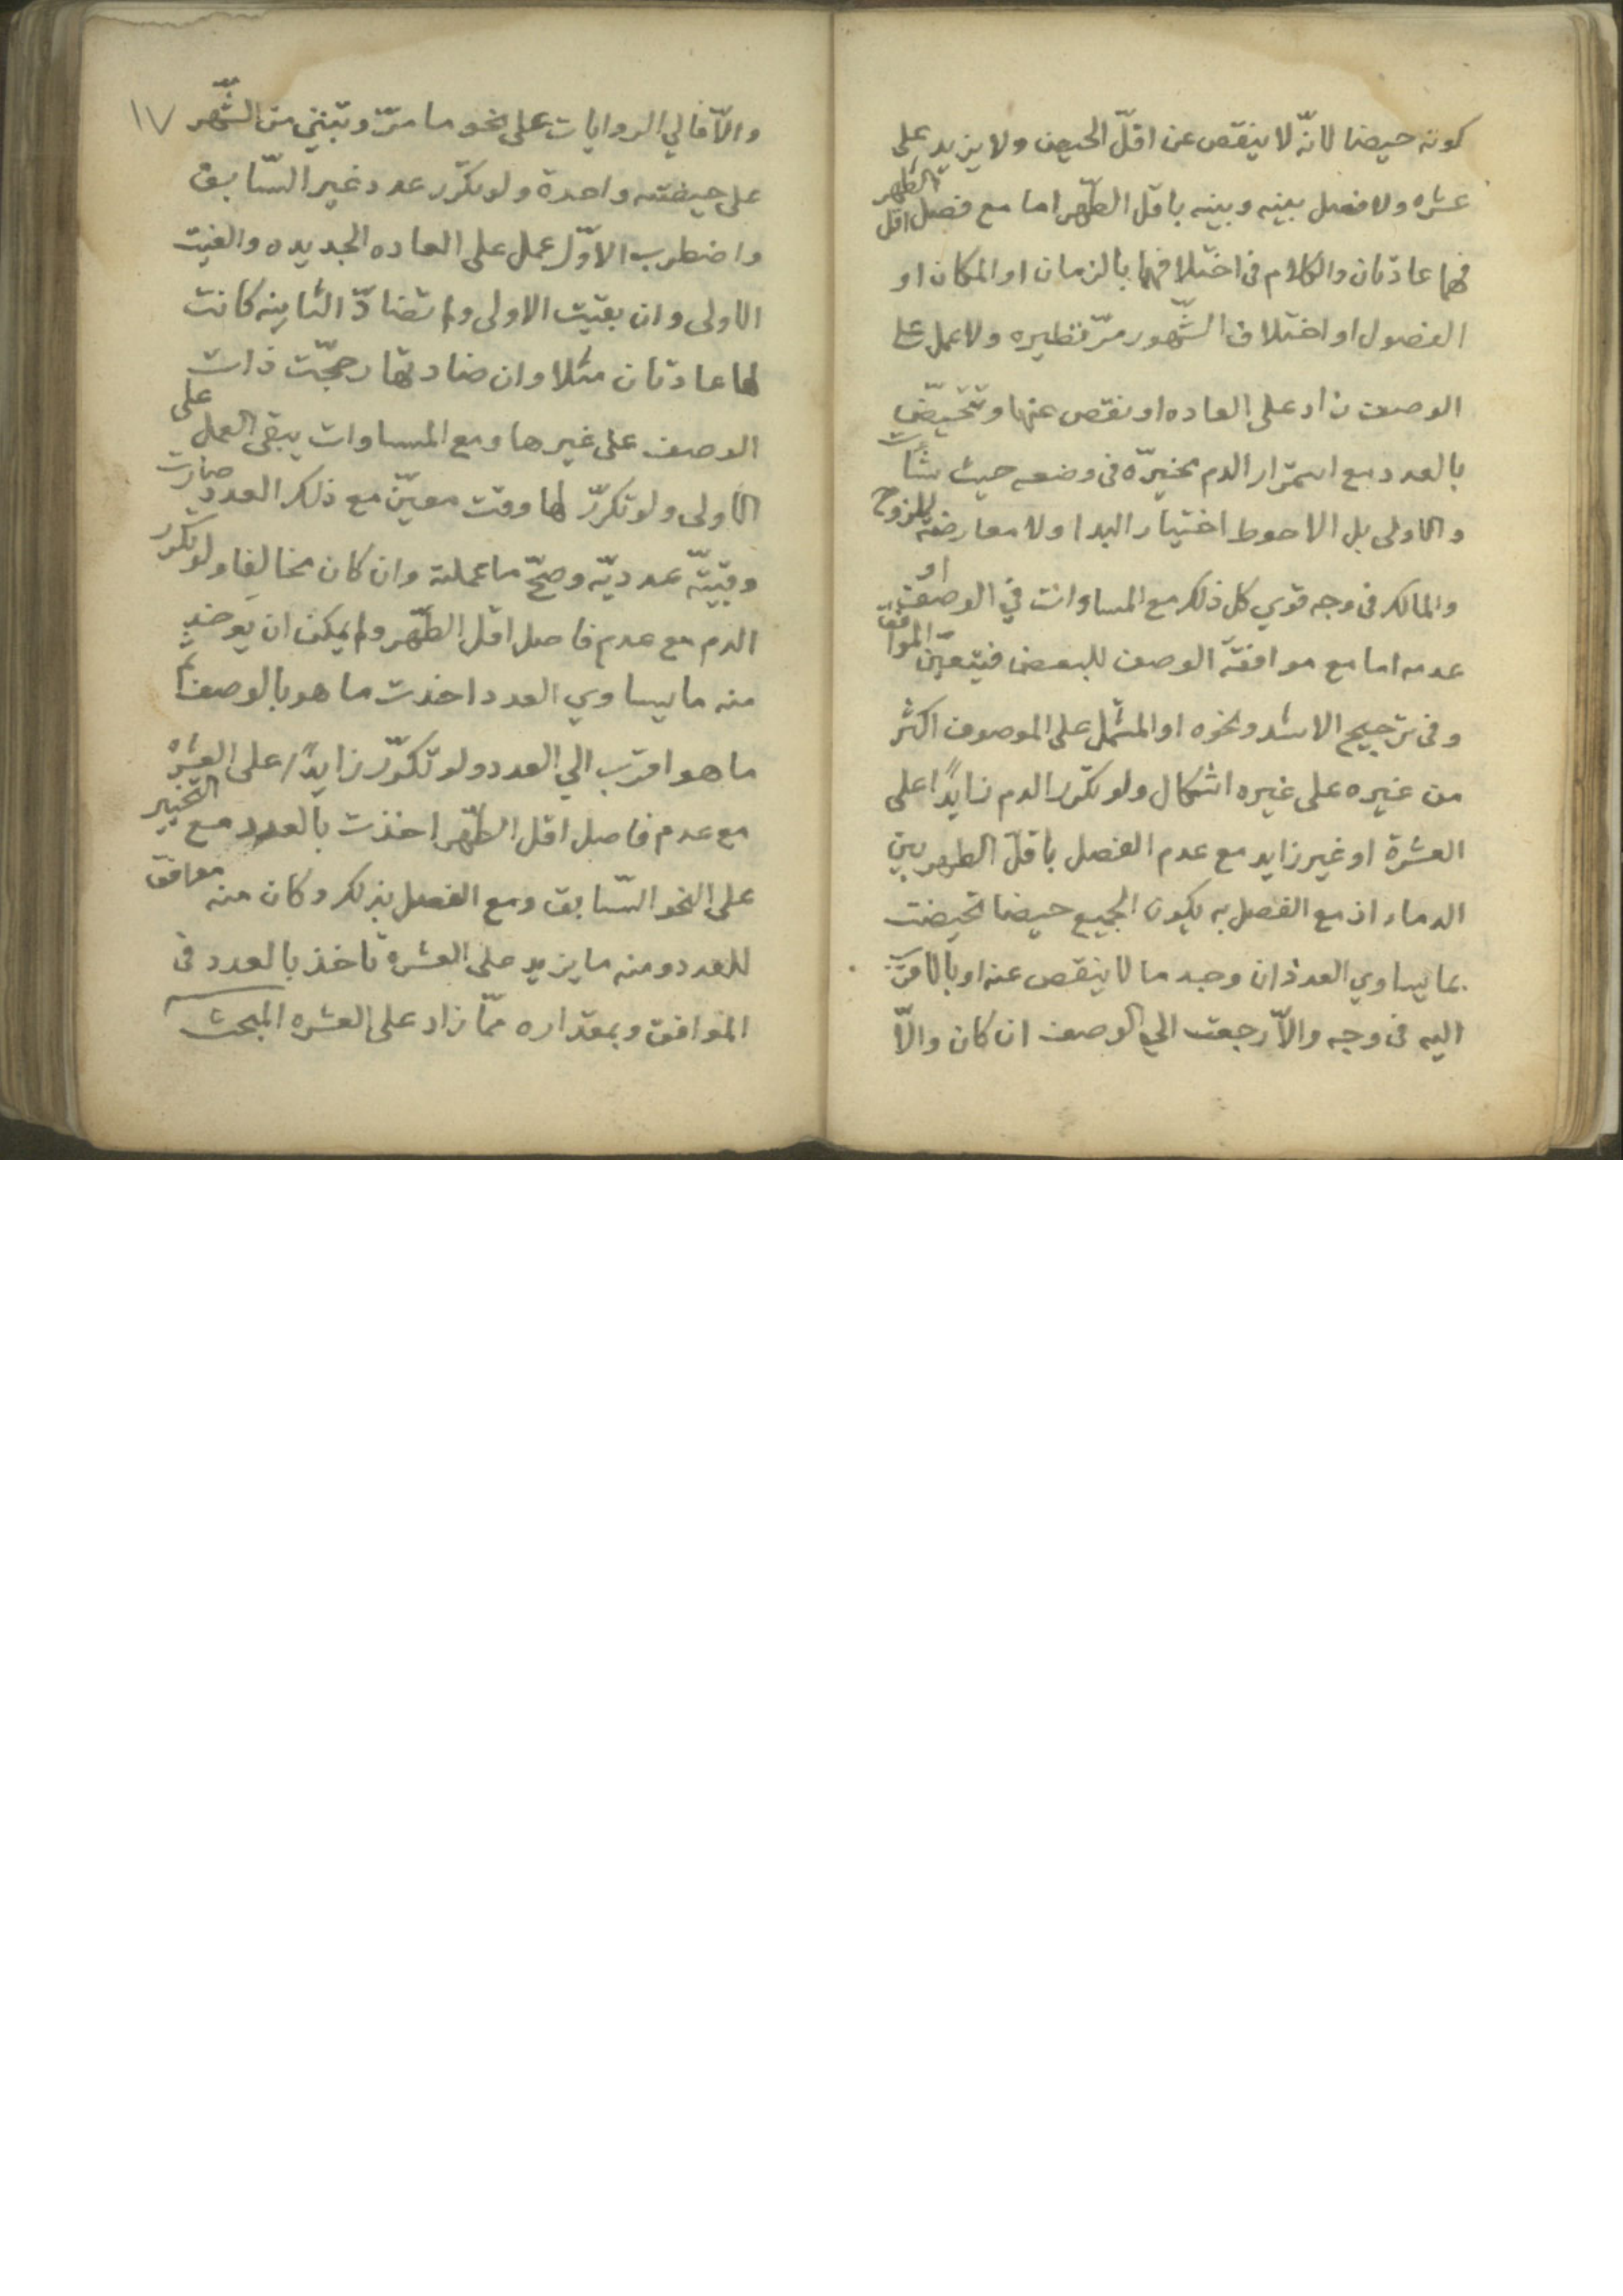 كونه حيضا لانّه لا ينقص عن اقلّ الحيض ولا يزيد على
عشره ولا فصل بينه وبينه باقل الطّهر اما مع فصل اقل الطّهر
فهما عادتان والكلام فى اختلافهما بالزمان او المكان او
الفصول او اختلاف الشّهور مرّ نظيره ولا عمل على
الوصف زاد على العاده او نقص عنها وتتحيّض
بالعدد مع استمرار الدم مخيرّه فى وضعه حيث شاءت
والاولى بل الاحوط اختيار البدا ولا معارضة للزوج
والمالك فى وجه قوي كل ذلك مع المساوات في الوصف او
عدمه اما مع موافقة الوصف للبعض فيتعيّن الموافق
وفى ترجيح الاشد ونحوه او المشتمل على الموصوف اكثر
من غيره على غيره اشكال ولو تكرّر الدم زايدًا على
العشرة او غير زايد مع عدم الفصل باقل الطهر بين
الدماء اذ مع الفصل به يكون الجميع حيضا تحيضت
بما يساوي العدد ان وجد ما لا ينقص عنه او بالاقرب
اليه فى وجه والاّ رجعت الي الوصف ان كان والاّ
١٧
والاّ فالي الروايات على نحو ما مرّ وتبني من الشّهر
على حيضته واحدة ولو تكرّر عدد غير السّابق
واضطرب الاوّل عمل على العاده الجديده والغيت
الاولى وان بقيت الاولى ولم تضادّ الثانيه كانت
لها عادتان مثلا وان ضادتها رجحّت ذات
الوصف على غيرها ومع المساوات يبقى العمل على
الاولى ولو تكرّر لها وقت معيّن مع ذلك العدد صارت
وقتيّة عدديّه وصحّ ما عملته وان كان مخالفا ولو تكرر
الدم مع عدم فاصل اقل الطّهر ولم يمكن ان يوخذ
منه ما يساوي العدد اخذت ما هو بالوصف ثم
ما هو اقرب الي العدد ولو تكرّر زايدًا على العشره
مع عدم فاصل اقل الطّهر اخذت بالعدد مع التخيير
على النحو السّابق ومع الفصل بذلك وكان منه موافق
للعدد ومنه ما يزيد على العشره تاخذ بالعدد فى
الموافق وبمقداره ممّا زاد على العشره المبحث